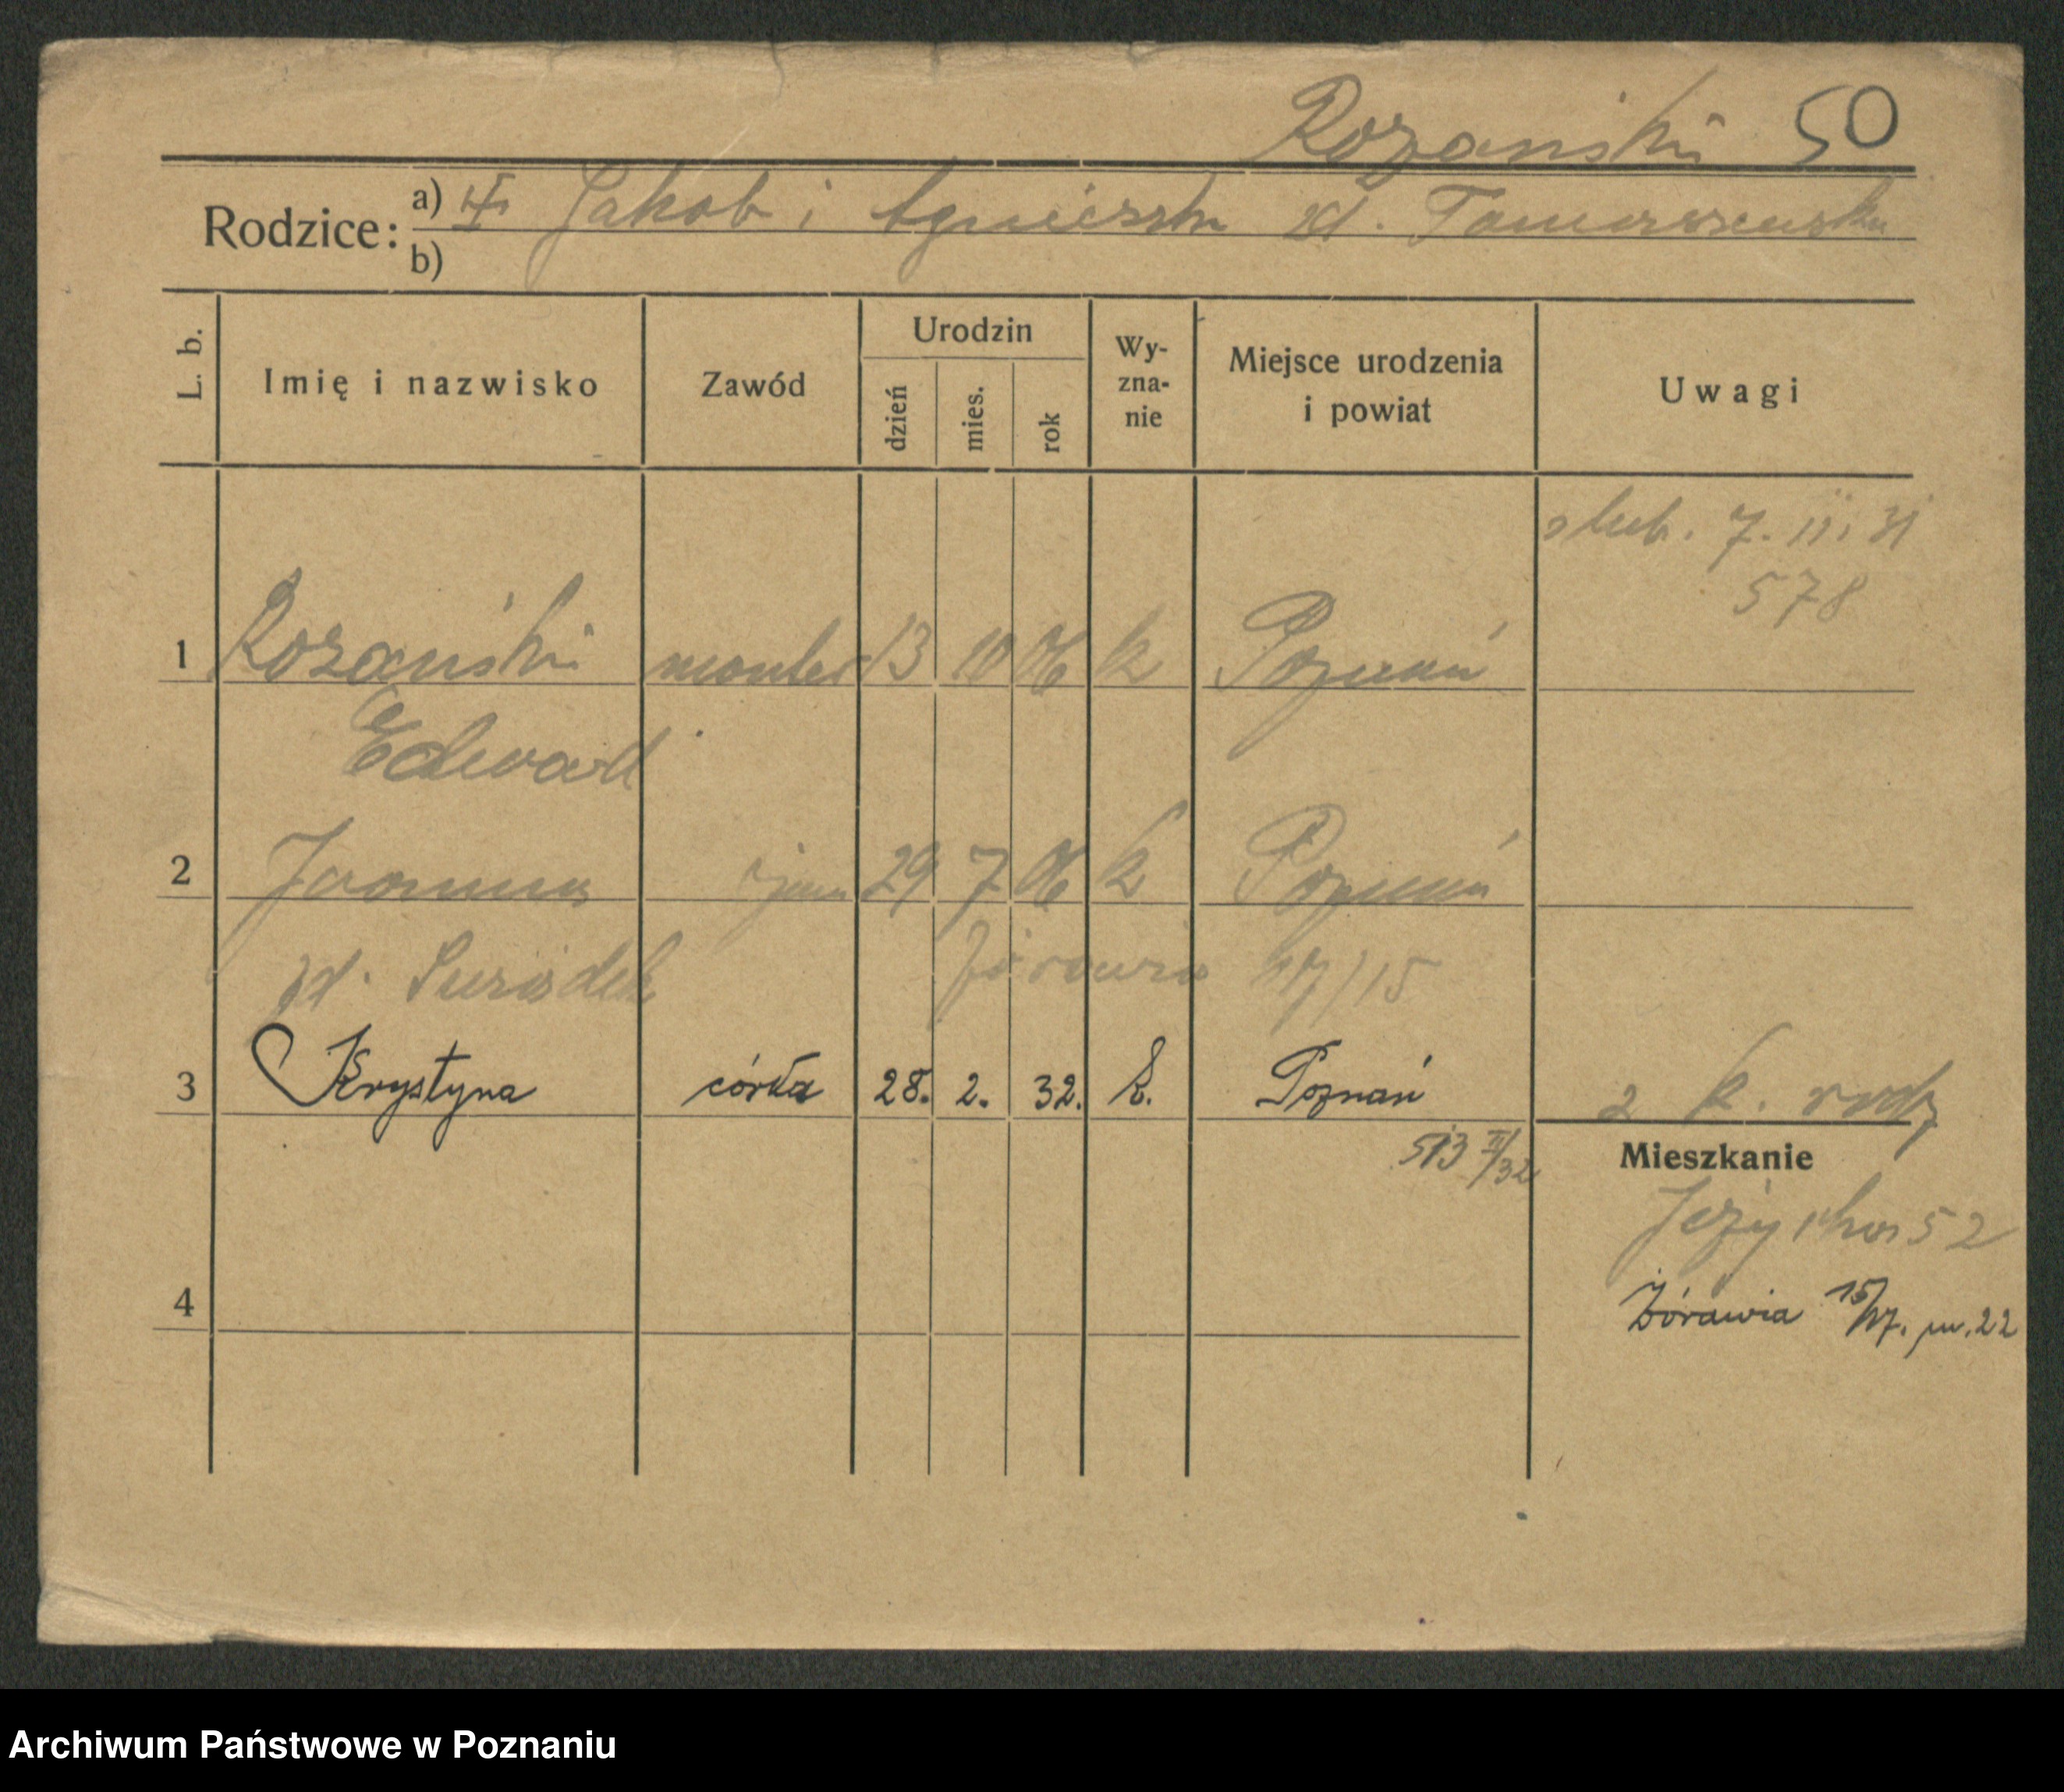 Rozański 50
Rodzice: a) Jakob i Agnieszka zd. Tomaszewska
b)
L. b. Imię i nazwisko Zawód Urodzin dzień mies. rok Wy-zna-nie Miejsce urodzenia i powiat Uwagi
ślub. 7. 11. 31
578
1 Rozański monter 13 10 06 k Poznań
Edward
2 Joanna żona 29 7 06 k Poznań
zd. Żórawia 17/15
3 Krystyna córka 28. 2. 32. k. Poznań 2 k. rodz
513 II/32 Mieszkanie
Jeżycka 52
4 Żórawia 15/17. m. 22
Archiwum Państwowe w Poznaniu